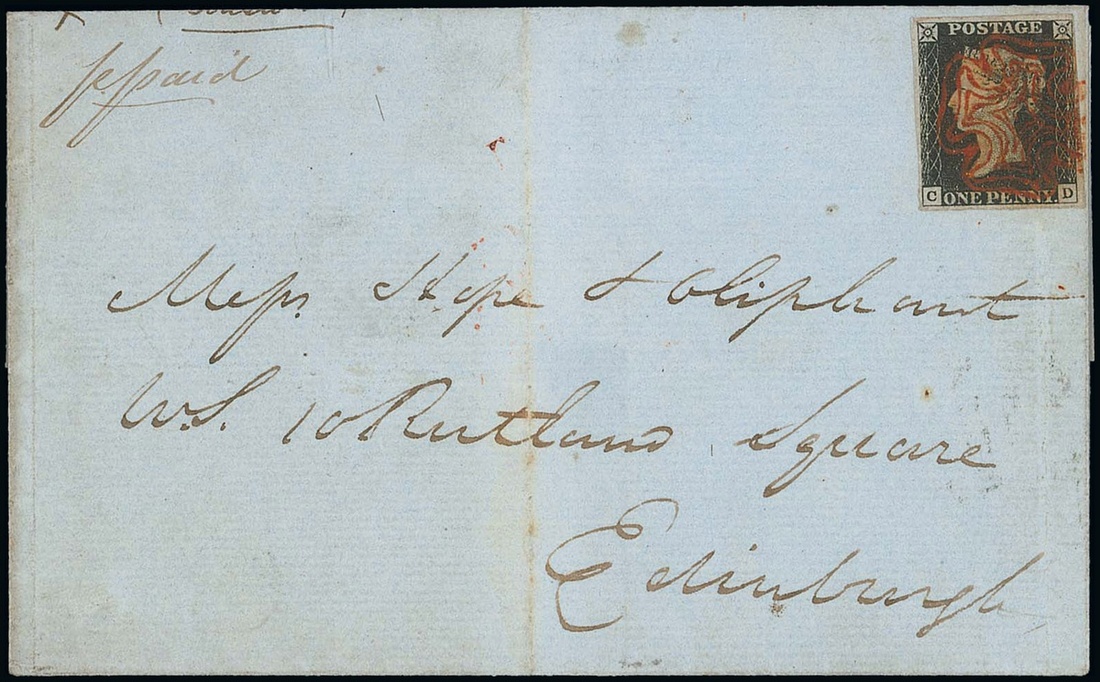 p.paid
POSTAGE
C D
ONE PENNY.
Messrs Hope & Oliphant
W.S. 10 Rutland Square
Edinburgh